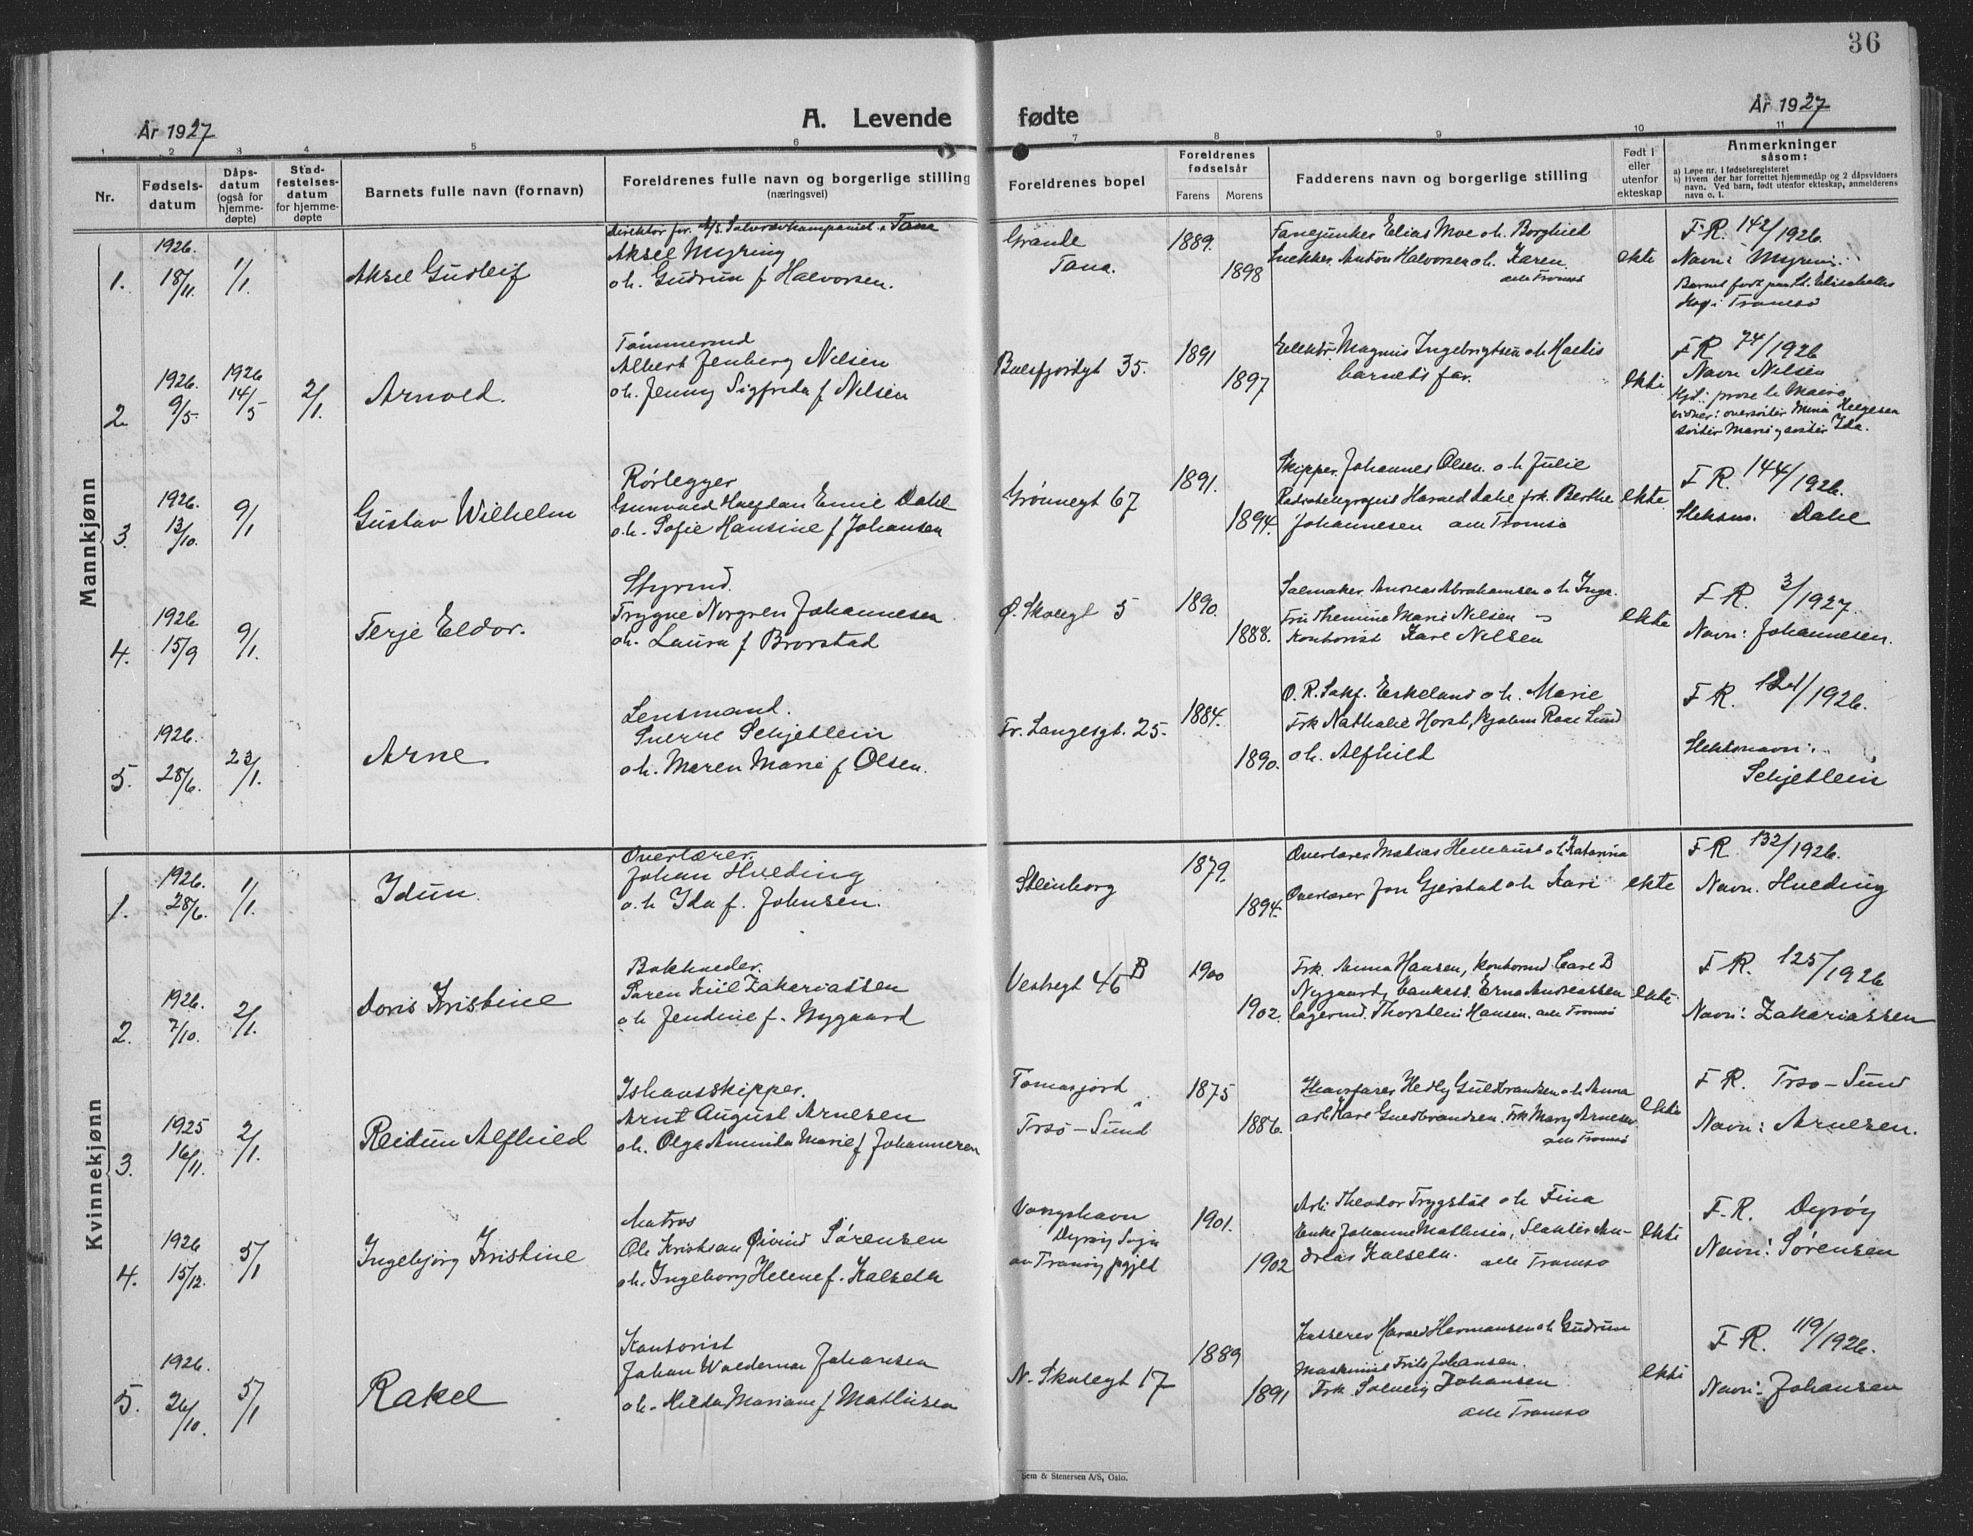 36
År 1927
A. Levende
fødte
År 1927
1 2 3 4 5 6 7 8 9 10 11
Nr.
Fødsels-
datum
Dåps-
datum
(også for
hjemme-
døpte)
Stad-
festelses-
datum
for hjemme-
døpte
Barnets fulle navn (fornavn)
Foreldrenes fulle navn og borgerlige stilling
(næringsvei)
Foreldrenes bopel
Foreldrenes
fødselsår
Farens Morens
Fadderens navn og borgerlige stilling
Født i
eller
utenfor
ekteskap
Anmerkninger
såsom:
a) Løpe nr. i fødselsregisteret
b) Hvem der har forrettet hjemmedåp og 2 dåpsvidners
navn. Ved barn, født utenfor ekteskap, anmelderens
navn o. l.
Mannkjønn
1.
1926.
18/11.
1/1.
Aksel Gudleif
Direktør for A/S Tana
Aksel Myring
o.h. Gudrun f Halvorsen.
Grande
Tana.
1889.
1898
Elias Moe o.h. Borghild
Snekker Anton Halvorsen o.h. Karen.
alle Tromsø
ekte
F.R. 142/1926.
Navn: Myring.
Barnet født paa St. Elisabeths
Hosp i Tromsø
2.
1926.
9/5.
1926
14/5
2/1.
Arnold.
Tømmermd
Albert Jenberg Nilsen
o.h. Jenny Sigfrida f Nilsen
Balsfjordgt 35.
1891
1897
Magnus Ingebrigtsen o.h.
barnets far.
ekte
F R 74/1926
Navn Nilsen
Helgesen
3.
1926.
13/10.
9/1
Gustav Wilhelm
Rørlegger
Gunvald Halfdan Emil Dahl
o.h. Sofie Hansine f Johansen
Grønnegt 67
1891.
1894.
Skipper Johannes Olsen o.h. Julie
Harald Dahl frk. Berthe
Johannesen alle Tromsø
ekte
F R. 144/1926.
Slektsn. Dahl
4.
1926
15/9
9/1.
Terje Eldor.
Styrmd.
Trygve Norgren Johannesen
o.h. Laura f Brorstad
Ø. Skolegt 5
1890.
1888.
Salmaker Andreas Abrahamsen o.h. Inga.
Marie Nilsen
Kontorist Kare Nilsen
ekte
F R. 3/1927.
Navn: Johannesen.
5.
1926.
28/6.
23/1.
Arne
Lensmand.
Sverre Schjetlein
o.h. Maren Marie f Olsen.
Fr. Langesgt. 25.
1884.
1890.
O.R. Sakf. Eskeland o.h. Marie
Frk Nathalie Horst, Lund
o.h. Alfhild
F R. 121/1926.
Slektsnavn:
Schjetlein
Kvinnekjønn
1.
1926.
28/6.
1/1.
Idun
Overlærer.
Johan Hveding
o.h Ida f. Johnsen.
Steinborg
1879.
1894.
Overlærer Matias o.h. Katarina
Overlærer Jon Gjerstad o.h. Kari
ekte
F R. 132/1926.
Navn. Hveding
2.
1926.
7/10.
2/1.
Doris Kristine
Bokholder.
Søren Zakariassen
o.h Jendine f. Nygaard
Vestregt 46 B
1900
1902.
Frk. Anna Hansen, Carl B
Nygaard, Erna Andreassen
lagermd. Thorstein Hansen. alle Tromsø
ekte
F.R. 125/1926
Navn: Zakariassen
3.
1925
16/11.
2/1.
Reidun Alfhild
Ishavsskipper.
Arnt August Arnesen
o.h. Olga Aminda Marie f Johannesen
Tomasjord
Trsø-Sund
1875
1886.
Ishavsfarer Hedly Guldbrandsen o.h. Anna
arb. Kare Guldbrandsen. Frk Mary Arnesen
alle Tromsø
ekte
F R. Trsø-Sund
Navn: Arnesen.
4.
1926
15/12.
5/1
Ingebjørg Kristine
Matros
Ole Kristian Øivind Sørensen
o.h. Ingeborg Helene f. Kalseth
Vangshavn
Dyrøy Sogn
av Tranøy prgjld
1901.
1902
Arb. Theodor Trygstad o.h Fina
Enke Johanne Mathisen, Slakter An-
dreas Kalseth. alle Tromsø
ekte
F.R. Dyrøy
Navn: Sørensen
5.
1926.
26/10.
5/1
Rakel
Kontorist
Johan Waldemar Johansen
o.h. Hilda Mariane f Mathisen
N. Skolegt 17
1889
1891
Kasserer Harald Hermansen o.h Gudrun
Maskinist Frits Johansen.
Frk. Solveig Johansen
alle Tromsø
ekte
F R. 119/1926.
Navn: Johansen
Sem & Stenersen A/S, Oslo.